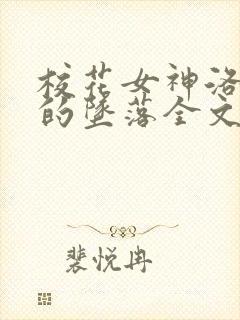 校花女神洛
的墜落全文
裴悦冉